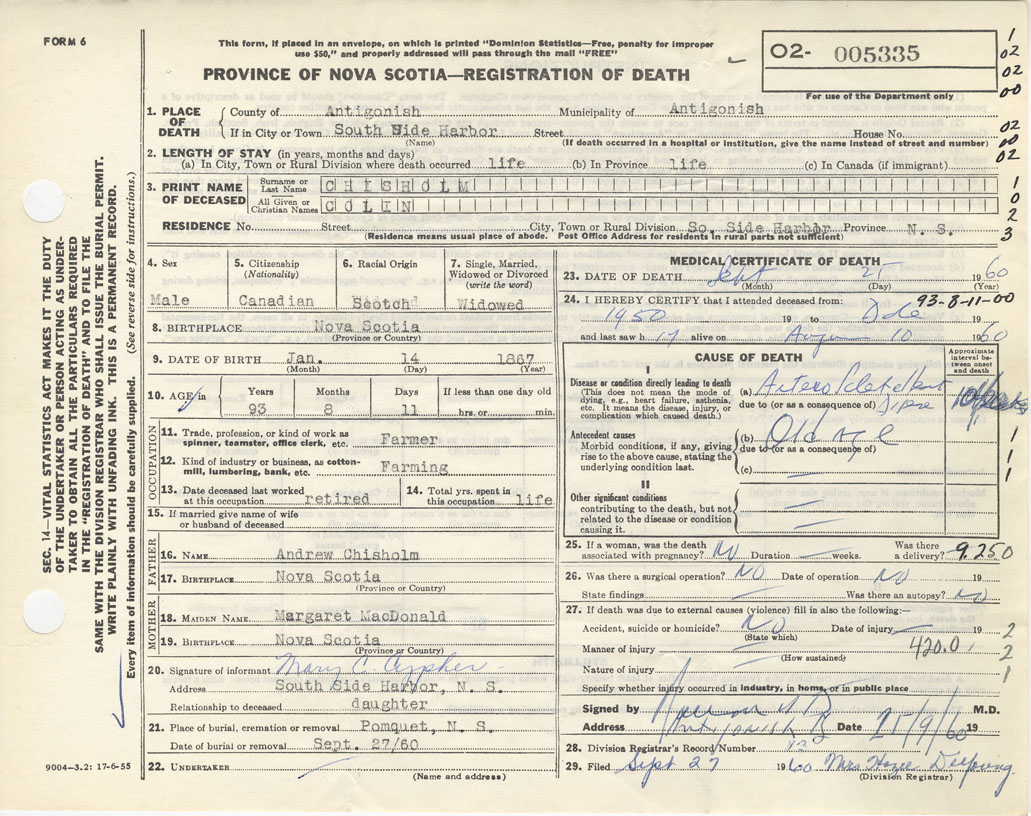 FORM 6
This form, if placed in an envelope, on which is printed "Dominion Statistics—Free, penalty for improper
use $50," and properly addressed will pass through the mail "FREE"
PROVINCE OF NOVA SCOTIA—REGISTRATION OF DEATH
02- 005335
For use of the Department only
1
02
02
00
1. PLACE OF DEATH County of Antigonish Municipality of Antigonish
If in City or Town South Side Harbor Street House No.
(Name) (If death occurred in a hospital or institution, give the name instead of street and number)
02
00
02
2. LENGTH OF STAY (in years, months and days)
(a) In City, Town or Rural Division where death occurred life (b) In Province life (c) In Canada (if immigrant)
3. PRINT NAME OF DECEASED
Surname or Last Name CHISHOLM
All Given or Christian Names COLIN
1
0
2
3
RESIDENCE No. Street City, Town or Rural Division So. Side Harbor Province N. S.
(Residence means usual place of abode. Post Office Address for residents in rural parts not sufficient)
4. Sex
Male
5. Citizenship
(Nationality)
Canadian
6. Racial Origin
Scotch
7. Single, Married,
Widowed or Divorced
(write the word)
Widowed
8. BIRTHPLACE Nova Scotia
(Province or Country)
9. DATE OF BIRTH Jan. 14 1867
(Month) (Day) (Year)
10. AGE in Years Months Days If less than one day old
93 8 11 hrs. or min.
OCCUPATION
11. Trade, profession, or kind of work as
spinner, teamster, office clerk, etc. Farmer
12. Kind of industry or business, as cotton-
mill, lumbering, bank, etc. Farming
13. Date deceased last worked
at this occupation retired
14. Total yrs. spent in
this occupation life
15. If married give name of wife
or husband of deceased
FATHER
16. NAME Andrew Chisholm
17. BIRTHPLACE Nova Scotia
(Province or Country)
MOTHER
18. MAIDEN NAME Margaret MacDonald
19. BIRTHPLACE Nova Scotia
(Province or Country)
20. Signature of informant Mary C.
Address South Side Harbor, N. S.
Relationship to deceased daughter
21. Place of burial, cremation or removal Pomquet, N. S.
Date of burial or removal Sept. 27/60
22. UNDERTAKER
(Name and address)
MEDICAL CERTIFICATE OF DEATH
23. DATE OF DEATH Sept 25 1960
(Month) (Day) (Year)
24. I HEREBY CERTIFY that I attended deceased from: 93-8-11-00
1950 19 to Date 19
and last saw h alive on 10 1960
CAUSE OF DEATH
Approximate
interval be-
tween onset
and death
I
Disease or condition directly leading to death
(This does not mean the mode of
dying, e.g., heart failure, asthenia,
etc. It means the disease, injury, or
complication which caused death.)
(a)
due to (or as a consequence of)
Antecedent causes
Morbid conditions, if any, giving
rise to the above cause, stating the
underlying condition last.
(b) Old age
due to (or as a consequence of)
(c)
1
1
1
II
Other significant conditions
contributing to the death, but not
related to the disease or condition
causing it.
25. If a woman, was the death
associated with pregnancy? No Duration weeks. Was there
a delivery? 9.250
26. Was there a surgical operation? NO Date of operation NO 19
State findings Was there an autopsy? NO
27. If death was due to external causes (violence) fill in also the following:—
Accident, suicide or homicide? NO Date of injury 19
(State which)
Manner of injury 420.0
(How sustained)
Nature of injury
2
2
1
Specify whether injury occurred in industry, in home, or in public place
Signed by M.D.
Address Antigonish Date 25/9/60 19
28. Division Registrar's Record Number
29. Filed Sept 27 1960 Mrs
(Division Registrar)
SEC. 14—VITAL STATISTICS ACT MAKES IT THE DUTY
OF THE UNDERTAKER OR PERSON ACTING AS UNDER-
TAKER TO OBTAIN ALL THE PARTICULARS REQUIRED
IN THE "REGISTRATION OF DEATH" AND TO FILE THE
SAME WITH THE DIVISION REGISTRAR WHO SHALL ISSUE THE BURIAL PERMIT.
WRITE PLAINLY WITH UNFADING INK. THIS IS A PERMANENT RECORD.
Every item of information should be carefully supplied. (See reverse side for instructions.)
9004—3.2: 17-6-55